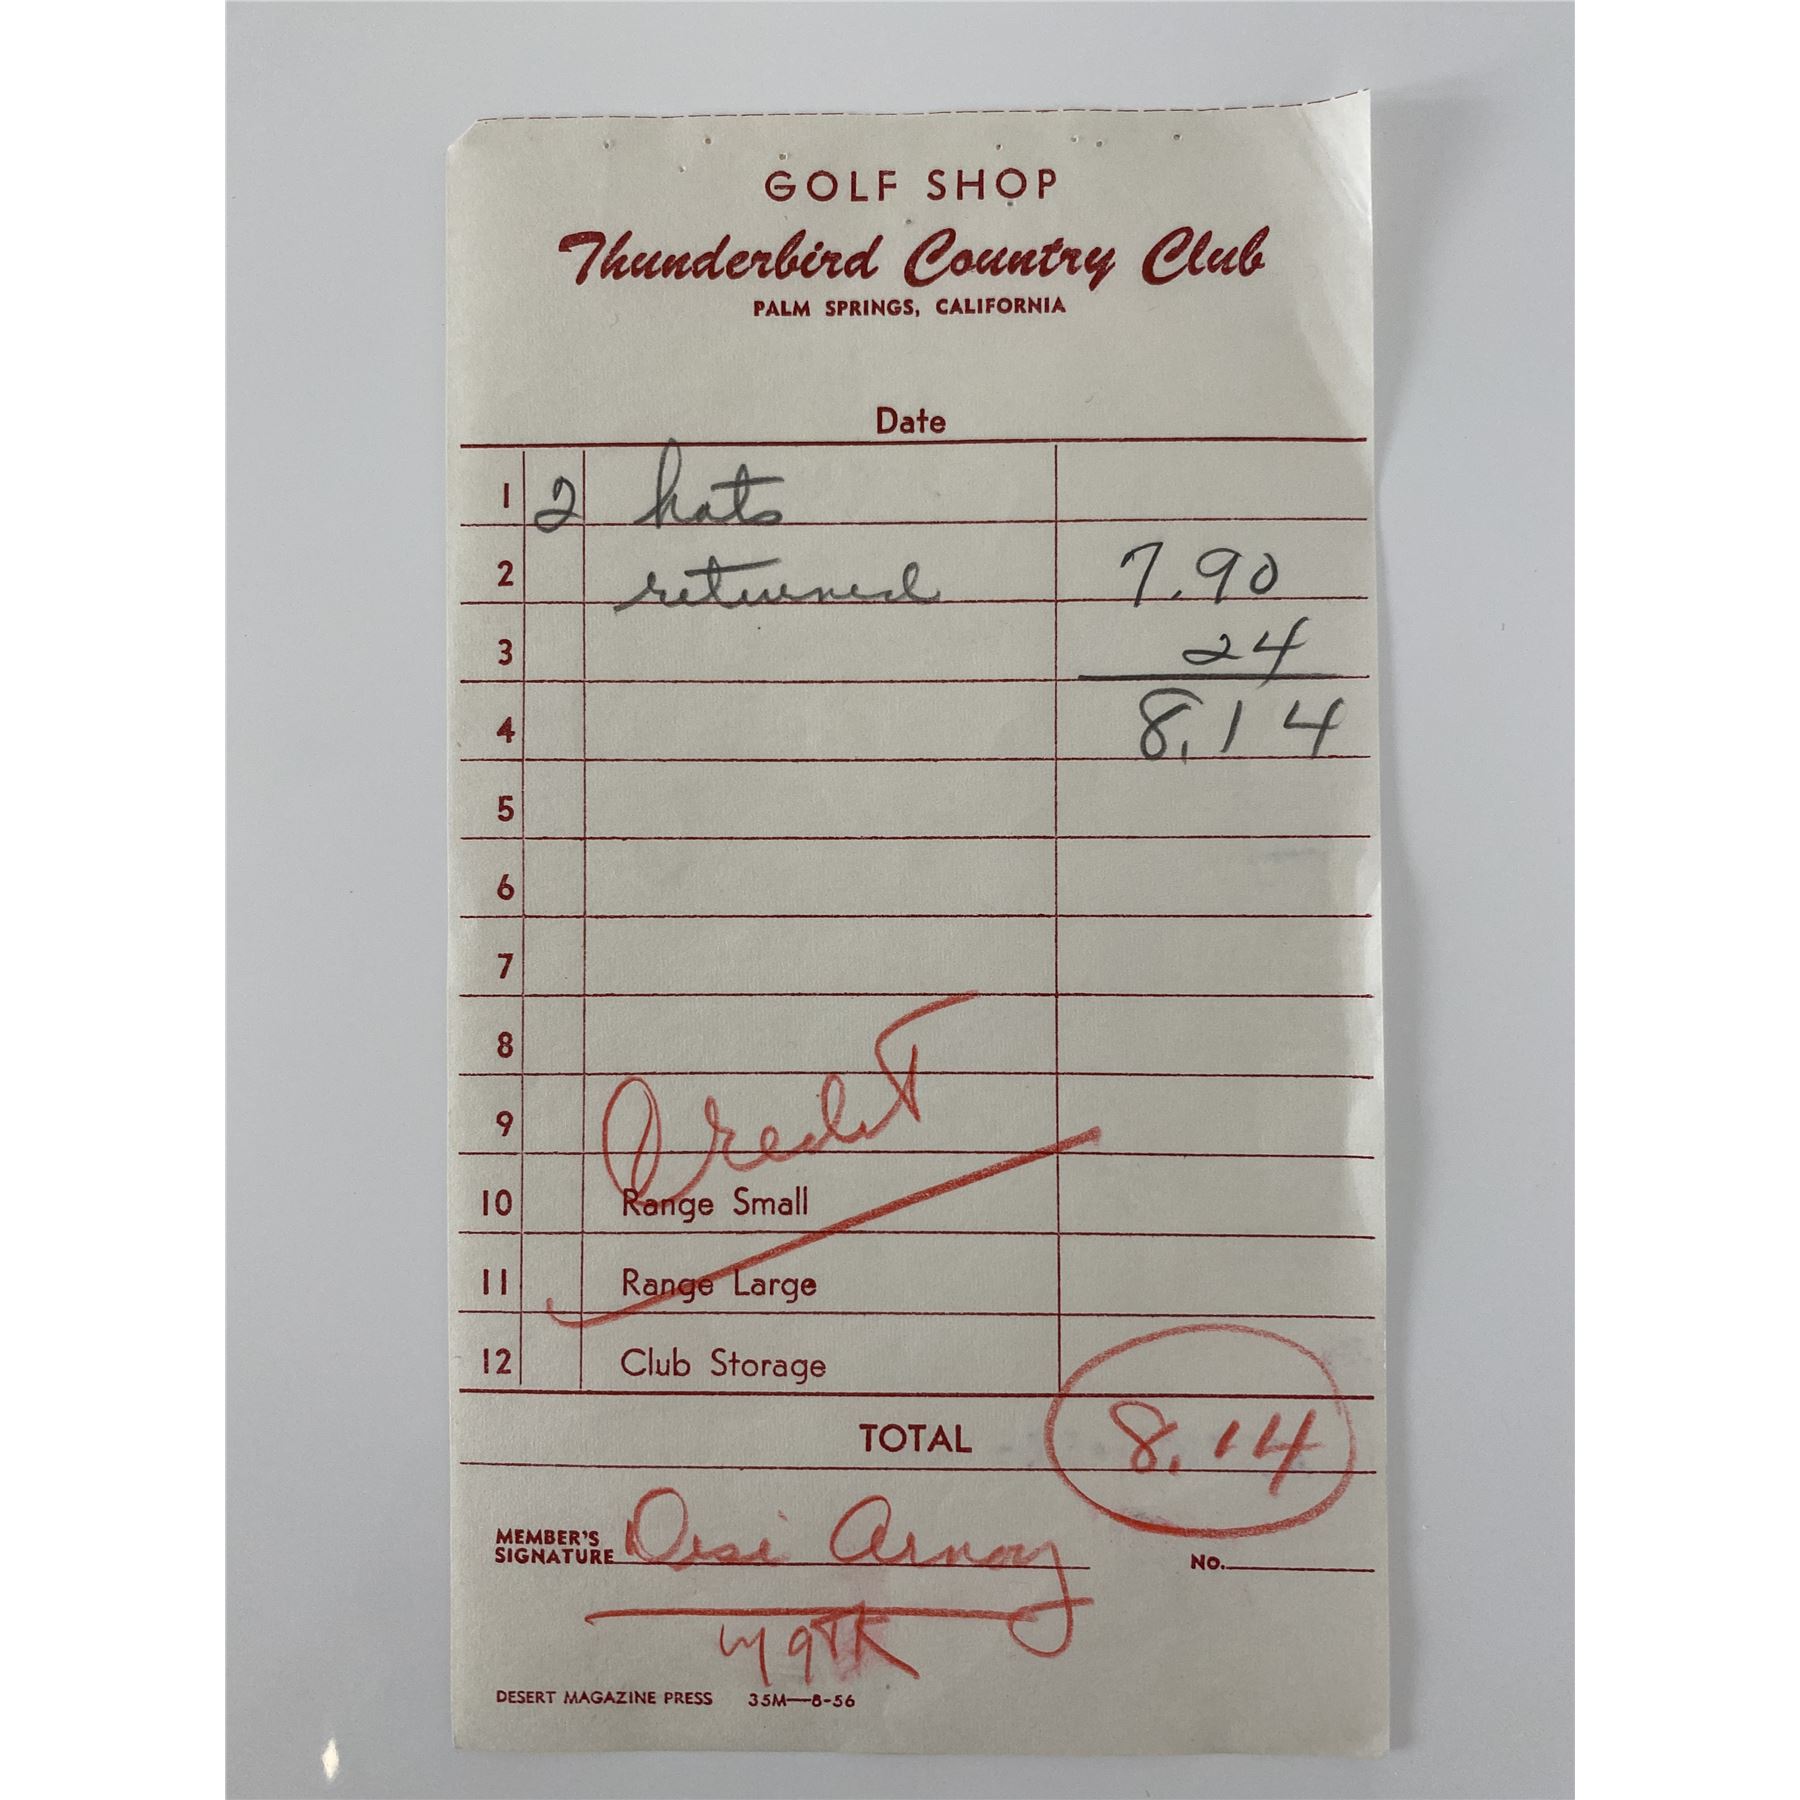 GOLF SHOP
Thunderbird Country Club
PALM SPRINGS, CALIFORNIA
Date
1 2 hats
2 returned 7.90
3 24
4 8.14
5
6
7
8
9 Credit
10 Range Small
11 Range Large
12 Club Storage
TOTAL 8.14
MEMBER'S
SIGNATURE Desi Arnaz
NO.
DESERT MAGAZINE PRESS 35M—8-56